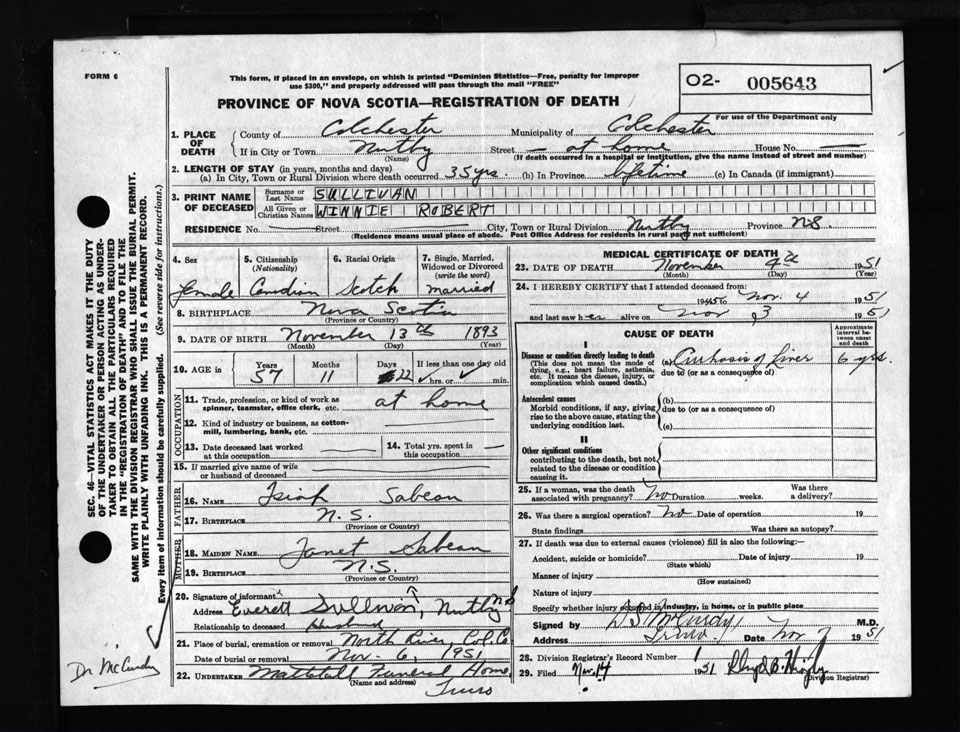 FORM 6
This form, if placed in an envelope, on which is printed "Dominion Statistics—Free, penalty for improper
use $300," and properly addressed will pass through the mail "FREE"
02- 005643
For use of the Department only
PROVINCE OF NOVA SCOTIA—REGISTRATION OF DEATH
1. PLACE OF DEATH
County of Colchester Municipality of Colchester
If in City or Town Nuttby Street — at home House No. —
(Name) (If death occurred in a hospital or institution, give the name instead of street and number)
2. LENGTH OF STAY (in years, months and days)
(a) In City, Town or Rural Division where death occurred 35 yrs. (b) In Province lifetime (c) In Canada (if immigrant)
3. PRINT NAME OF DECEASED
Surname or Last Name SULLIVAN
All Given or Christian Names WINNIE ROBERT
RESIDENCE No. Street City, Town or Rural Division Nuttby Province N.S
(Residence means usual place of abode. Post Office Address for residents in rural parts not sufficient)
4. Sex female
5. Citizenship (Nationality) Canadian
6. Racial Origin Scotch
7. Single, Married, Widowed or Divorced (write the word) married
8. BIRTHPLACE Nova Scotia
(Province or Country)
9. DATE OF BIRTH November 13th 1893
(Month) (Day) (Year)
10. AGE in Years 57 Months 11 Days 22 If less than one day old hrs. or min.
OCCUPATION
11. Trade, profession, or kind of work as spinner, teamster, office clerk, etc. at home
12. Kind of industry or business, as cotton-mill, lumbering, bank, etc.
13. Date deceased last worked at this occupation
14. Total yrs. spent in this occupation
15. If married give name of wife or husband of deceased
FATHER
16. NAME Isiah Sabean
17. BIRTHPLACE N.S.
(Province or Country)
MOTHER
18. MAIDEN NAME Janet Sabean
19. BIRTHPLACE N.S.
(Province or Country)
20. Signature of informant Everett Sullivan, Nuttby N.S
Address
Relationship to deceased Husband
21. Place of burial, cremation or removal North River, Col. Co.
Date of burial or removal Nov- 6, 1951
22. UNDERTAKER Mattatall Funeral Home,
(Name and address) Truro
MEDICAL CERTIFICATE OF DEATH
23. DATE OF DEATH November 4th 1951
(Month) (Day) (Year)
24. I HEREBY CERTIFY that I attended deceased from:
1945 to Nov. 4 1951
and last saw her alive on Nov 3 1951
CAUSE OF DEATH
Approximate interval between onset and death
I
Disease or condition directly leading to death
(This does not mean the mode of dying, e.g., heart failure, asthenia, etc. It means the disease, injury, or complication which caused death.)
(a) Cirrhosis of Liver 6 yrs.
due to (or as a consequence of)
Antecedent causes
Morbid conditions, if any, giving rise to the above cause, stating the underlying condition last.
(b)
due to (or as a consequence of)
(c)
II
Other significant conditions
contributing to the death, but not related to the disease or condition causing it.
25. If a woman, was the death associated with pregnancy? No Duration weeks. Was there a delivery?
26. Was there a surgical operation? No Date of operation 19
State findings Was there an autopsy?
27. If death was due to external causes (violence) fill in also the following:—
Accident, suicide or homicide? Date of injury 19
(State which)
Manner of injury
(How sustained)
Nature of injury
Specify whether injury occurred in industry, in home, or in public place
Signed by D S McCurdy M.D.
Address Truro Date Nov 7 1951
28. Division Registrar's Record Number 1
29. Filed Nov. 14 1951
(Division Registrar)
SEC. 46—VITAL STATISTICS ACT MAKES IT THE DUTY
OF THE UNDERTAKER OR PERSON ACTING AS UNDER-
TAKER TO OBTAIN ALL THE PARTICULARS REQUIRED
IN THE "REGISTRATION OF DEATH" AND TO FILE THE
SAME WITH THE DIVISION REGISTRAR WHO SHALL ISSUE THE BURIAL PERMIT.
WRITE PLAINLY WITH UNFADING INK. THIS IS A PERMANENT RECORD.
Every item of information should be carefully supplied. (See reverse side for instructions.)
Dr McCurdy